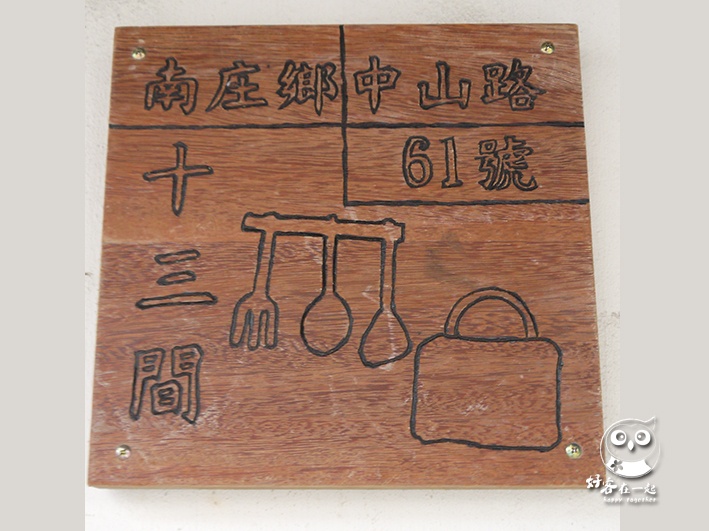 南庄鄉 中山路
61號
十三間
好客在一起
happy together